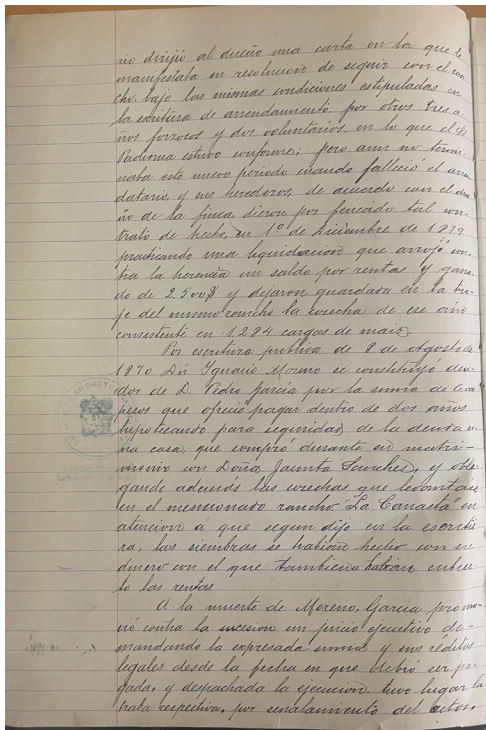 rio dirijió al dueño una carta en la que le
manifestaba su resolucion de seguir con el ran
cho, bajo las mismas condiciones estipuladas en
la escritura de arrendamiento por otros tres a-
ños forzosos y dos voluntarios, en lo que el Sr
Paduma estuvo conforme; pero aun no termi
naba este nuevo periodo cuando falleció el arren
datario, y sus herederos, de acuerdo con el due
ño de la finca, dieron por fenecido tal con-
trato de hecho, en 1º de Diciembre de 1879
practicando una liquidacion que arrojó con
tra la herencia un saldo por rentas y gana
do de 2.500$ y dejaron guardada en la tro-
je del mismo rancho la cosecha de ese año
consistente en 1284 cargas de maiz.
Por escritura publica de 8 de Agosto de
1870 Dn Ignacio Moreno se constituyó deu-
dor de D. Pedro Garcia por la suma de
pesos que ofreció pagar dentro de dos años
hipotecando para seguridad de la deuda u-
na casa, que compró durante su matri-
monio con Doña Jacinta Sanches, y obli-
gando además las cosechas que levantase
en el mencionado rancho "La Canasta" en
atencion á que segun dijo en la escritu
ra, las siembras se habian hecho con su
dinero con el que tambien habian cubier-
to las rentas
A la muerte de Moreno, Garcia promo-
vió contra la sucesion un juicio ejecutivo de-
mandando la expresada suma y sus réditos
legales desde la fecha en que debió ser pa-
gada, y despachada la ejecucion tuvo lugar la
traba respectiva, por señalamiento del actor,